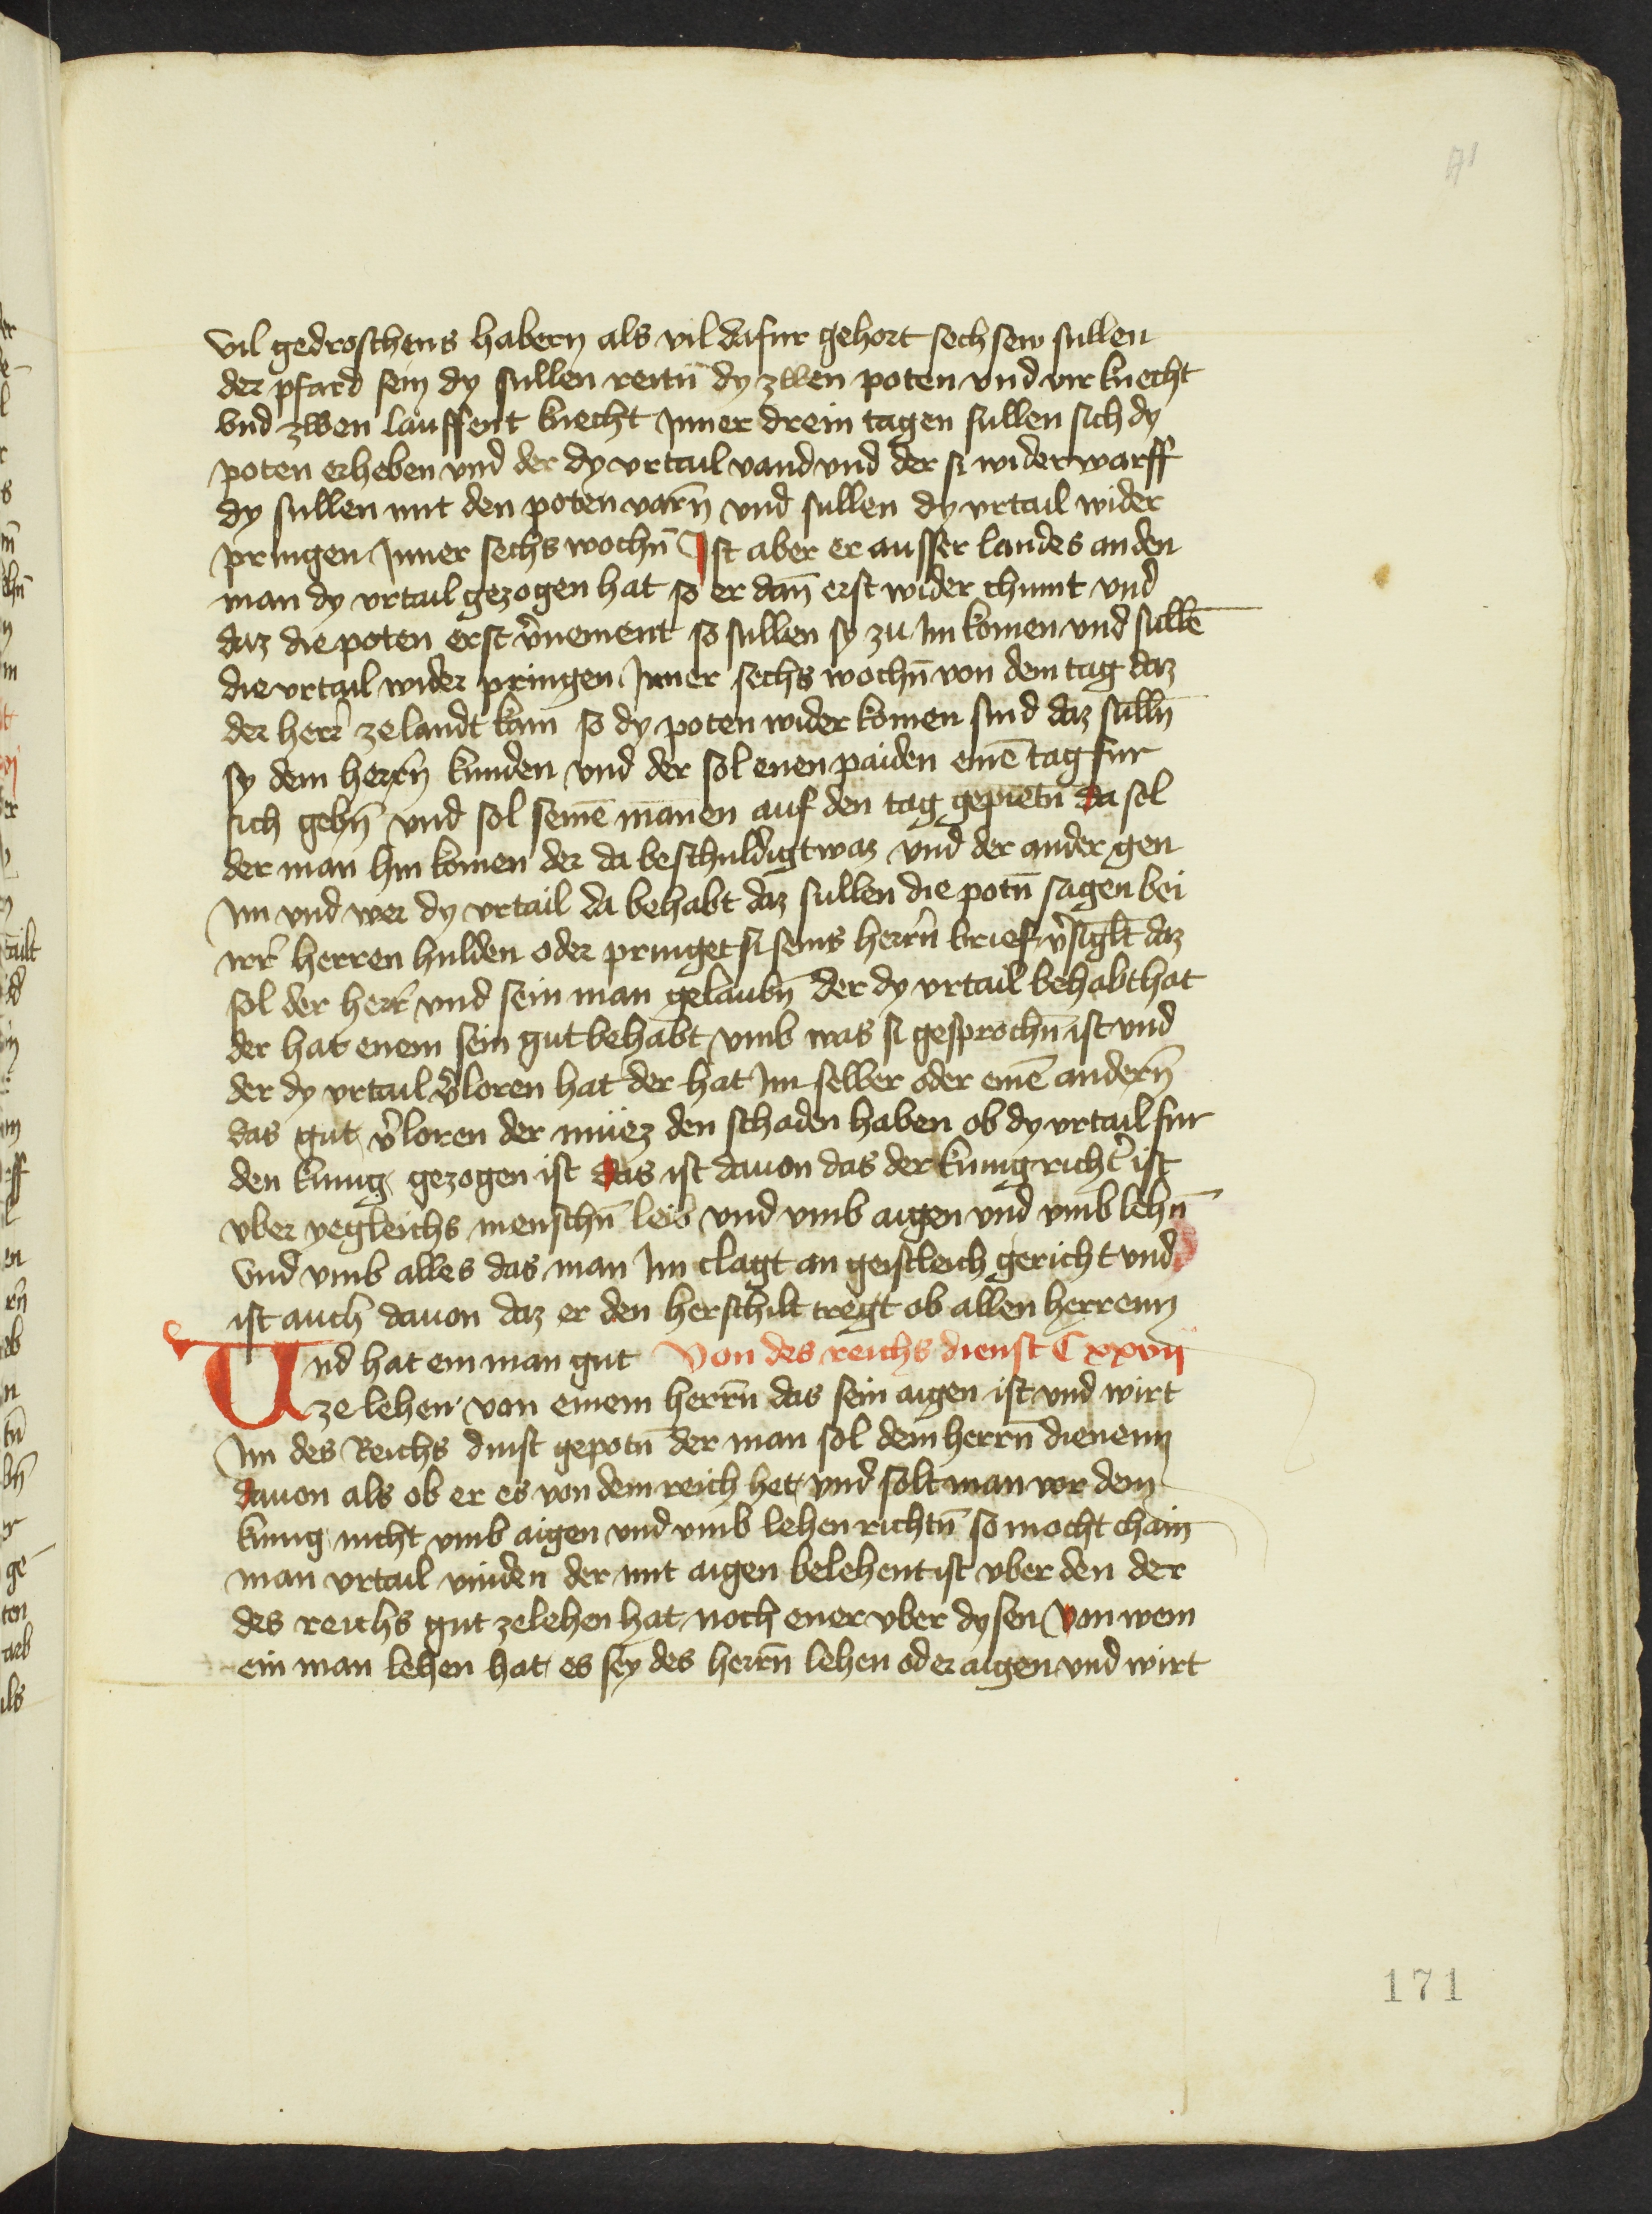 vil gedroschens habern als vil dafur gehort sechsew sullen
der pfard sein dy sullen reitn̄ dy zwen poten vnd vir knecht
vnd zwen lauffent knecht Inner drein tagen sullen sich dy
poten erheben vnd der dy vrtail vand vnd der si widerwarff
dy sullen mit den poten varn̄ vnd sullen dy vrtail wider
pringen Inner sechs wochn̄ Ist aber er ausser landes an den
man dy vrtail gezogen hat so er dan̄ erst wider chumt vnd
daz die poten erst v̉nement so sullen sy zu Im komen vnd sullē
die vrtail wider pringen Inner sechs wochn̄ von dem tag daz
der herr̉ ze landt kam so dy poten wider komen sind daz sulln̄
sy dem herrn̄ kunden vnd der sol enen paiden einē tag fur
sich gebn̄ vnd sol seinē mannen auf den tag gepietn̄ da sol
der man hin komen der da beschuldigt waz vnd der ander gen
Im vnd wer dy vrtail da behabt daz sullen die potn̄ sagen bei
irr̉ herren hulden oder pringet si seins herrn̄ brief v̉siglt daz
sol der herr̉ vnd sein man gelaubn̄ der dy vrtail behabt hat
der hat enem sein gut behabt vmb was si gesprochn̄ ist vnd
der dy vrtail v̉loren hat der hat Im selber oder einē andern̄
das gut v̉loren der müez den schaden haben ob dy vrtail fur
den kunig gezogen ist das ist dauon das der kunig richt̉ ist
vber yegleichs menschn̄ leib vnd vmb aigen vnd vmb lehn̄
vnd vmb alles das man Im clagt an geistleich gericht vnd
ist auch dauon daz er den herschilt tregt ob allen herrenn
Vnd hat ein man gut Von des reichs dienst C xxvij
ze lehen von einem herrn̄ das sein aigen ist vnd wirt
Im des Reichs dinst gepotn̄ der man sol dem herrn̄ dienenn
dauon als ob er es von dem reich het vnd solt man vor dem
kunig nicht vmb aigen vnd vmb lehen richtn̄ so mocht chain
man vrtail vinden der mit aigen belehent ist vber den der
des reichs gut ze lehen hat noch ener vber dysen Von wem
ein man lehen hat es sey des herrn̄ lehen oder aigen vnd wirt
171